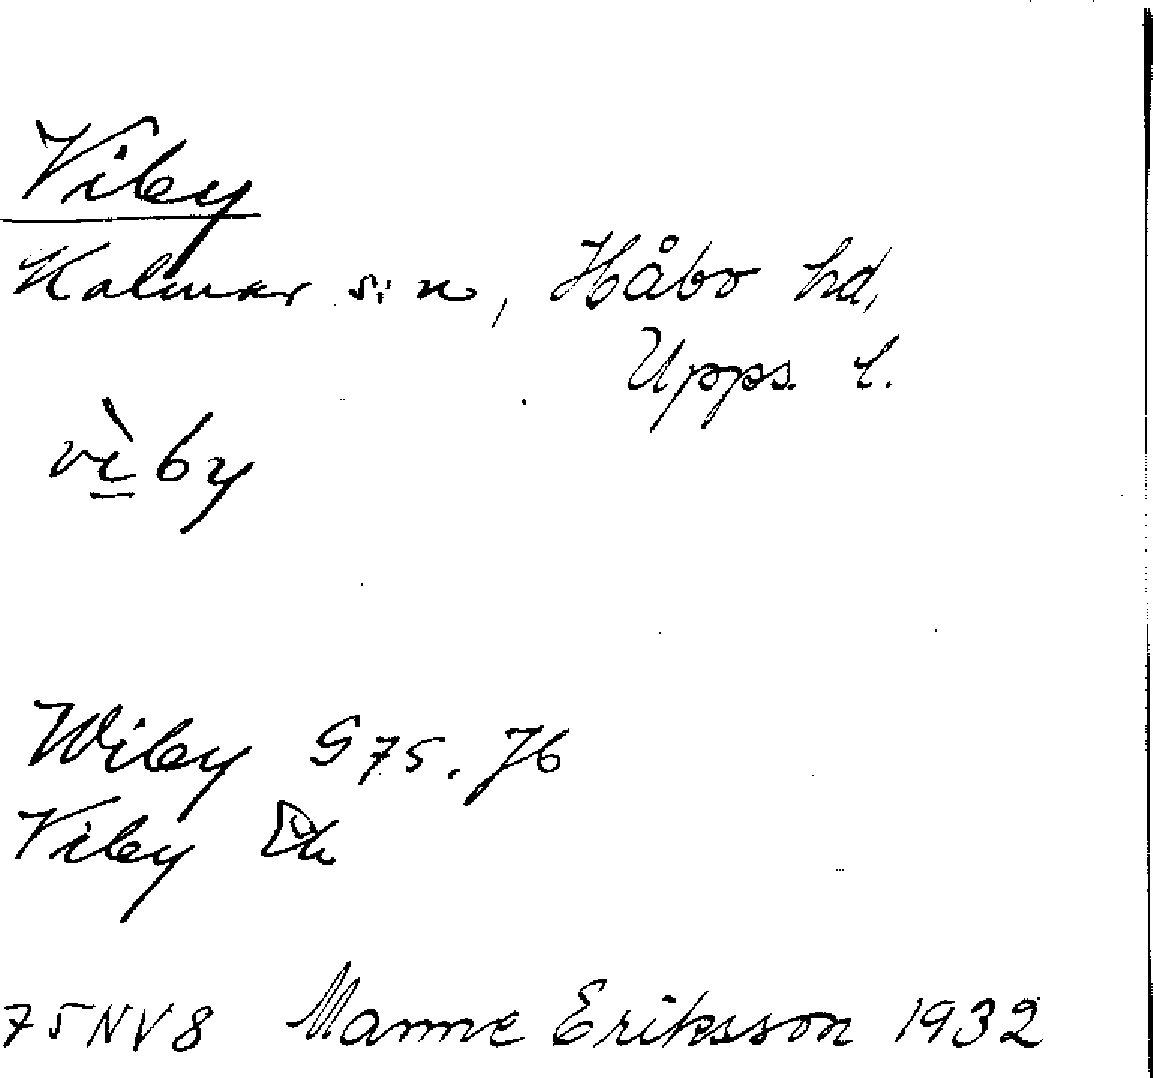 Viby
Kalmar sn, Håbo hd,
Upps. l.
vìby
Wiby G75. J6
Viby Ek
75NV8 Manne Eriksson 1932